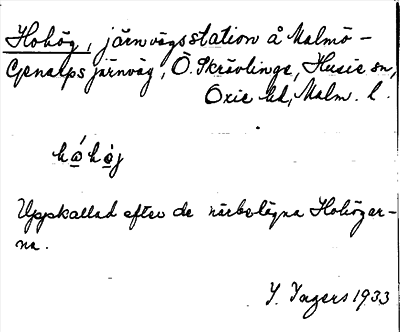 Hohög, järnvägsstation å Malmö–
Genarps järnväg, Ö. Skrävlinge, Husie sn,
Oxie hd, Malm. l.
ho̲´hö̲̀j
Uppkallad efter de närbelägna Hohögar-
na.
Y. Yagers 1933